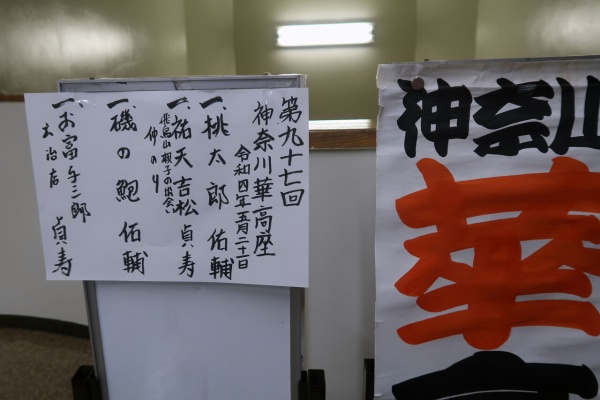 第九十七回
神奈川華高座
令和四年五月二十一日
一、桃太郎 佑輔
一、祐天吉松 貞寿
飛鳥山親子の出会い
仲のり
一、磯の鮑 佑輔
一、お富与三郎 貞寿
玄冶店
神奈川
華